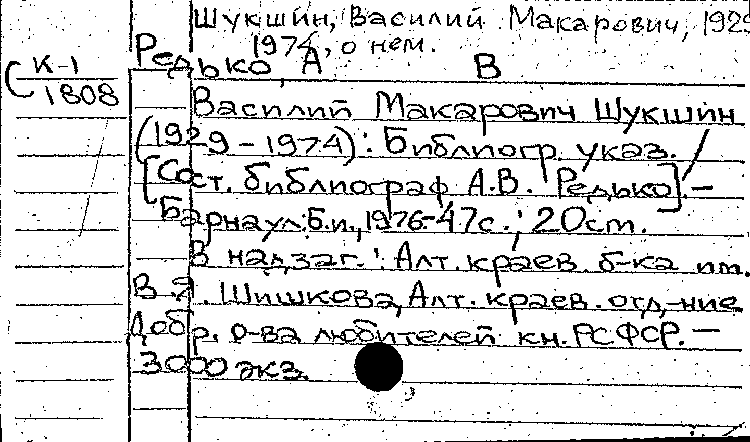 Шукшин, Василий Макарович, 1929
1974, о нем.
Редько, А В
С К-1
1808
Василий Макарович Шукшин
(1929-1974): Библиогр. указ. /
[Сост. библиограф А.В. Редько]. -
Барнаул: Б.и., 1976.-47с.; 20см.
В надзаг.: Алт. краев. б-ка им.
В.Я. Шишкова, Алт. краев. отд-ние
Добр. о-ва любителей кн. РСФСР. -
3000 экз.